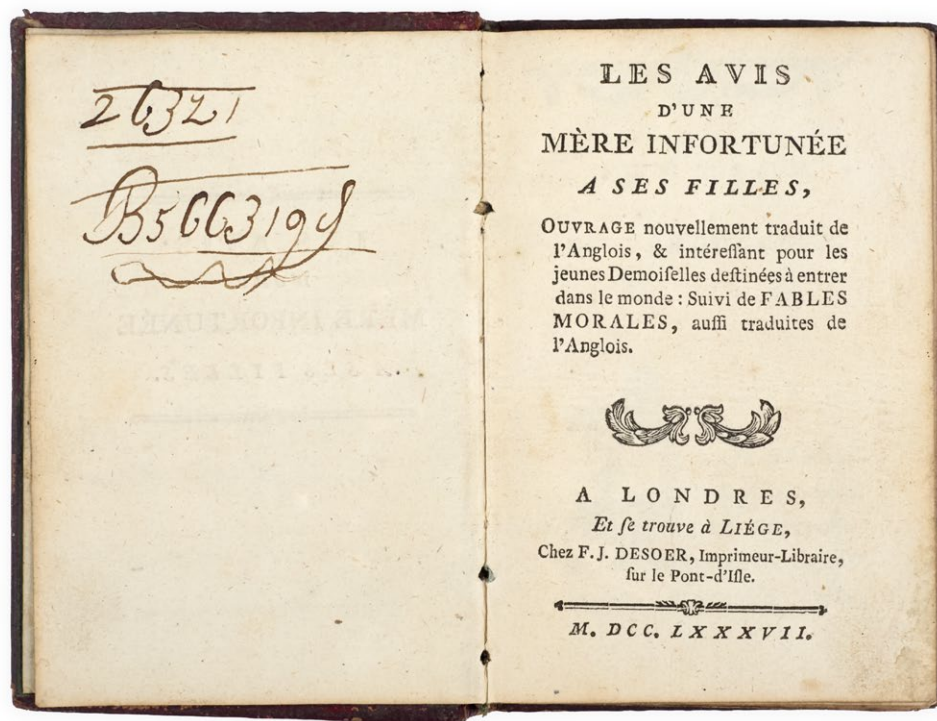 26321
B5663199
LES AVIS
D'UNE
MÈRE INFORTUNÉE
A SES FILLES,
OUVRAGE nouvellement traduit de
l'Anglois, & intéreſſant pour les
jeunes Demoiſelles deſtinées à entrer
dans le monde : Suivi de FABLES
MORALES, auſſi traduites de
l'Anglois.
A LONDRES,
Et ſe trouve à LIÉGE,
Chez F. J. DESOER, Imprimeur-Libraire,
ſur le Pont-d'Iſle.
M. DCC. LXXXVII.